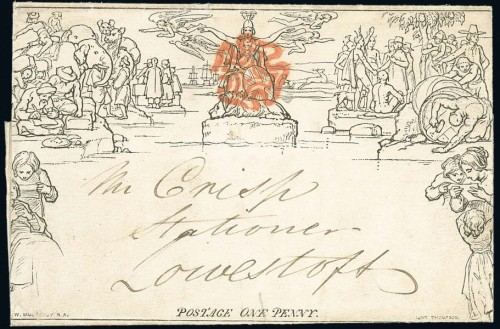 Mr Crisp
Stationer
Lowestoft
POSTAGE ONE PENNY.
W. MULREADY R.A.
JOHN THOMPSON